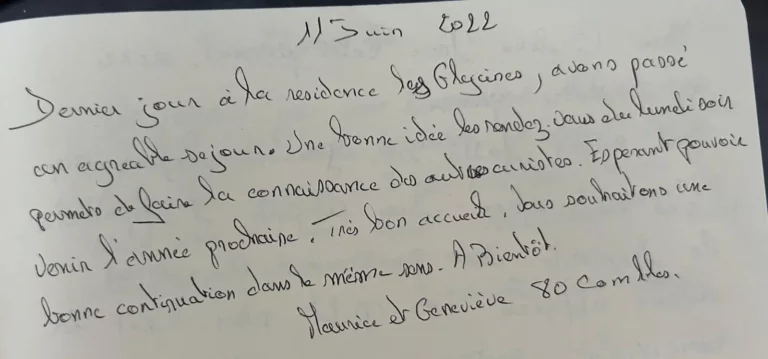 11 Juin 2022
Dernier jour à la residence les Glycines, avons passé
un agreable sejour. Une bonne idée les rendez-vous du lundi soir
permets de faire la connaissance des autres curistes. Esperant pouvoir
venir l'année prochaine. Très bon accueil, vous souhaitons une
bonne continuation dans le même sens. A Bientôt.
Maurice et Geneviève 80 Combles.